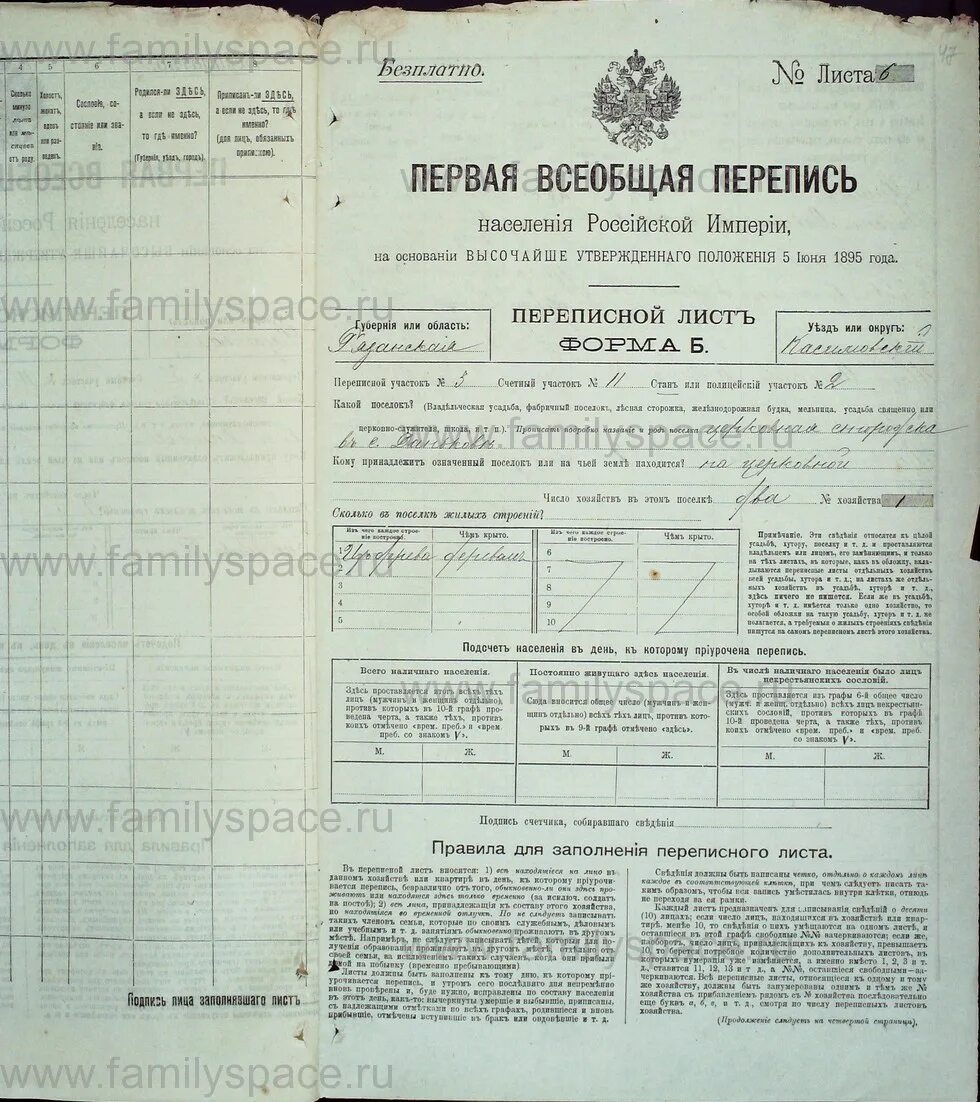 4 5 6 7 8
Сколько минуло лѣтъ или мѣсяцевъ отъ роду.
Холостъ, женатъ, вдовъ или разведенъ.
Сословіе, состояніе или званіе.
Родился-ли ЗДѢСЬ, а если не здѣсь, то гдѣ именно?
(Губернія, уѣздъ, городъ).
Приписанъ-ли ЗДѢСЬ, а если не здѣсь, то гдѣ именно?
(для лицъ, обязанныхъ припискою).
Подпись лица заполнявшаго листъ
Безплатно.
№ Листа 6
47
ПЕРВАЯ ВСЕОБЩАЯ ПЕРЕПИСЬ
населенія Россійской Имперіи,
на основаніи ВЫСОЧАЙШЕ УТВЕРЖДЕННАГО ПОЛОЖЕНІЯ 5 Іюня 1895 года.
Губернія или область:
Рязанская
ПЕРЕПИСНОЙ ЛИСТЪ
ФОРМА Б.
Уѣздъ или округъ:
Касимовскій
Переписной участокъ № 3 Счетный участокъ № 11 Станъ или полицейскій участокъ № 2
Какой поселокъ? (Владѣльческая усадьба, фабричный поселокъ, лѣсная сторожка, желѣзнодорожная будка, мельница, усадьба священно или
церковно-служителя, школа, и т. п.). Прописать подробно названіе и родъ поселка церковная сторожка
въ с.
Кому принадлежитъ означенный поселокъ или на чьей землѣ находится? на церковной
Число хозяйствъ въ этомъ поселкѣ два № хозяйства 1
Сколько въ поселкѣ жилыхъ строеній?
Изъ чего каждое строеніе построено.
Чѣмъ крыто.
Изъ чего каждое строеніе построено.
Чѣмъ крыто.
1 Изъ дерева деревомъ
2
3
4
5
6
7
8
9
10
Примѣчаніе. Эти свѣдѣнія относятся къ цѣлой
усадьбѣ, хутору, поселку и т. п. и проставляются
владѣльцемъ или лицомъ, его замѣняющимъ, и только
на тѣхъ листахъ, въ которые, какъ въ обложку, вкладываются переписные листы отдѣльныхъ хозяйствъ
всей усадьбы, хутора и т. д.; на листахъ же отдѣльныхъ хозяйствъ въ усадьбѣ, хуторѣ и т. д.,
здѣсь ничего не пишется. Если же въ усадьбѣ,
хуторѣ и т. д. имѣется только одно хозяйство, то
особой обложки на такую усадьбу, хуторъ и т. д. не
полагается, а требуемыя о жилыхъ строеніяхъ свѣдѣнія
пишутся на самомъ переписномъ листѣ этого хозяйства.
Подсчетъ населенія въ день, къ которому пріурочена перепись.
Всего наличнаго населенія.
Здѣсь проставляется итогъ всѣхъ тѣхъ
лицъ (мужчинъ и женщинъ отдѣльно),
противъ которыхъ въ 10-й графѣ проведена черта, а также тѣхъ, противъ
коихъ отмѣчено «врем. преб.» и «врем.
преб. со знакомъ V».
М. Ж.
Постоянно живущаго здѣсь населенія.
Сюда вносится общее число (мужчинъ и женщинъ отдѣльно) всѣхъ тѣхъ лицъ, противъ которыхъ въ 9-й графѣ отмѣчено «здѣсь».
М. Ж.
Въ числѣ наличнаго населенія было лицъ
некрестьянскихъ сословій.
Здѣсь проставляется изъ графы 6-й общее число
(мужч. и женщ. отдѣльно) всѣхъ лицъ некрестьянскихъ сословій, противъ которыхъ въ графѣ
10-й проведена черта, а также тѣхъ, противъ
коихъ отмѣчено «врем. преб.» и «врем. преб.
со знакомъ V».
М. Ж.
Подпись счетчика, собиравшаго свѣдѣнія
Правила для заполненія переписного листа.
Въ переписной листъ вносятся: 1) всѣ находящіеся на лицо въ
данномъ хозяйствѣ или квартирѣ въ день, къ которому пріурочивается перепись, безразлично отъ того, обыкновенно-ли они здѣсь проживаютъ или находятся здѣсь только временно (за исключ. солдатъ
на постоѣ); 2) всѣ лица, принадлежащія къ составу этого хозяйства,
но находящіеся во временной отлучкѣ. Но не слѣдуетъ записывать
такихъ членовъ семьи, которые по своимъ служебнымъ, дѣловымъ
или учебнымъ и т. д. занятіямъ обыкновенно проживаютъ въ другомъ
мѣстѣ. Напримѣръ, не слѣдуетъ записывать дѣтей, которыя для полученія образованія проживаютъ въ другомъ мѣстѣ, отдѣльно отъ
своей семьи, за исключеніемъ такихъ случаевъ, когда они прибыли
домой на побывку (временно пребывающими).
Листы должны быть заполнены къ тому дню, къ которому пріурочивается перепись, и утромъ сего послѣдняго дня непремѣнно
вновь провѣрены и, буде нужно, исправлены по составу населенія
въ этотъ день, какъ-то: вычеркнуты умершіе и выбывшіе, приписаны,
съ надлежащими отмѣтками во всѣхъ графахъ, родившіеся и вновь
прибывшіе, отмѣчены вступившіе въ бракъ или овдовѣвшіе и т. д.
Свѣдѣнія должны быть написаны четко, отдѣльно о каждомъ лицѣ
каждое въ соотвѣтствующей клѣткѣ, при чемъ слѣдуетъ писать такимъ образомъ, чтобы вся запись умѣстилась внутри клѣтки, отнюдь
не переходя за ея рамки.
Каждый листъ предназначенъ для записыванія свѣдѣній о десяти
(10) лицахъ; если число лицъ, находящихся въ хозяйствѣ или квартирѣ, менѣе 10, то свѣдѣнія о нихъ умѣщаются на одномъ листѣ, и
оставшіеся въ этой графѣ свободные №№ вычеркиваются; если же,
наоборотъ, число лицъ, принадлежащихъ къ хозяйству, превышаетъ
10, то беретъ потребно количество дополнительныхъ листовъ, въ
которыхъ нумерація уже измѣняется, а именно вмѣсто 1, 2, 3 и т.
д., ставится 11, 12, 13 и т. д., а №№, оставшіеся свободными—зачеркиваются. Всѣ переписные листы, относящіеся къ одному и тому
же хозяйству, должны быть занумерованы однимъ и тѣмъ же №
хозяйства съ прибавленіемъ рядомъ съ № хозяйства послѣдовательно
еще буквъ а, б, в, и т. д., смотря по числу переписныхъ листовъ
хозяйства.
(Продолженіе слѣдуетъ на четвертой страницѣ).
www.familyspace.ru